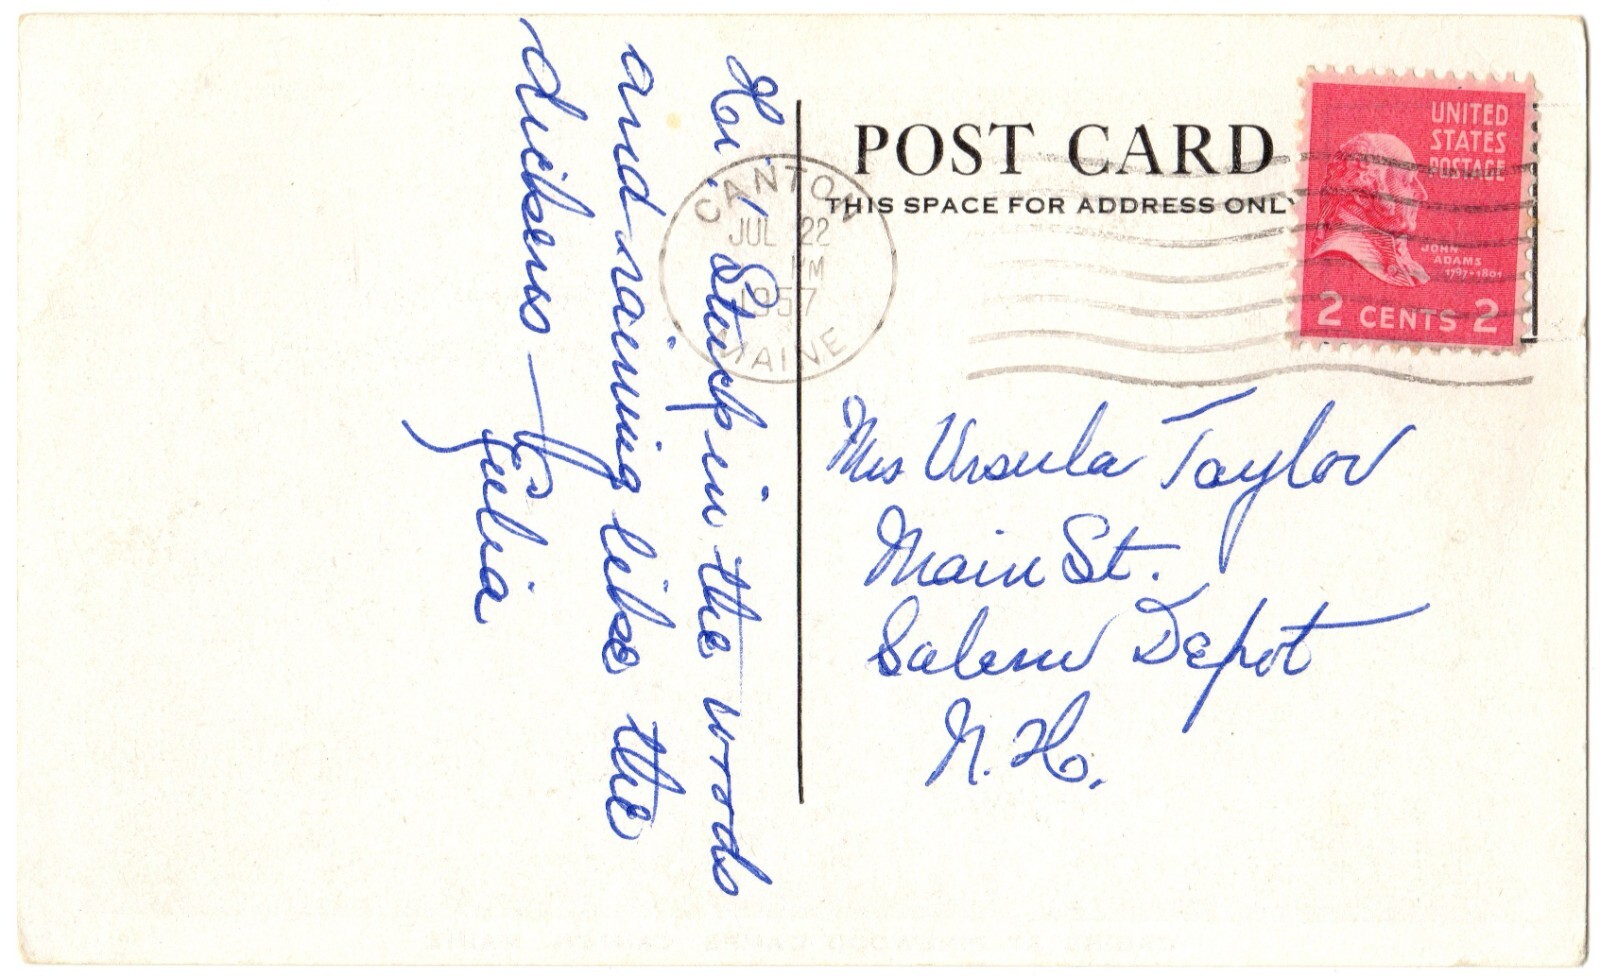 Hi, Stuck in the woods
and raining like the
dickens —
Julia
POST CARD
THIS SPACE FOR ADDRESS ONLY
CANTON
JUL 22
PM
1957
MAINE
UNITED
STATES
POSTAGE
JOHN
ADAMS
1797-1801
2 CENTS 2
Mrs Ursula Taylor
Main St.
Salem Depot
N. H.